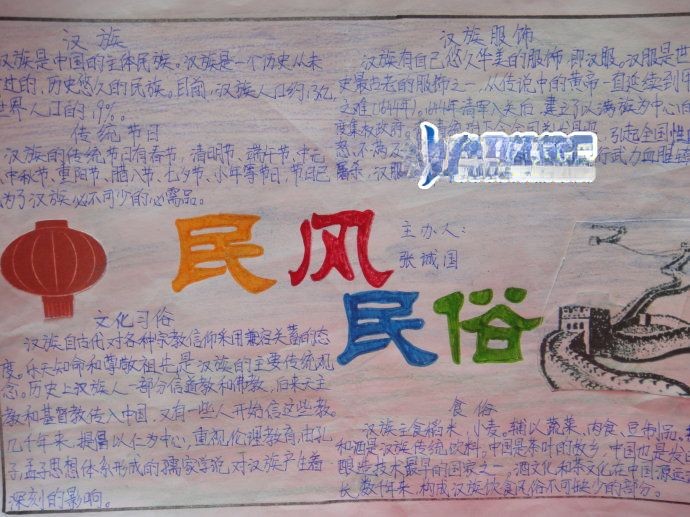 汉族
汉族是中国的主体民族。汉族是一个历史从未
过的,历史悠久的民族。目前,汉族人口约13亿,
世界人口的19%。
传统节日
汉族的传统节日有春节,清明节、端午节、中元
中秋节、重阳节、腊八节、七夕节、小年等节日,节日已
为了汉族必不可少的必需品。
汉族服饰
汉族有自己悠久华美的服饰,即汉服。汉服是世
史最古老的服饰之一,从传说中的黄帝一直延续到明
之难(1644年)。1644年清军入关后,建立了以满族为中心的
度集权政府。
引起全国性
怒,不满
行武力血腥镇
汉服
民风
民俗
主办人:
张诚国
文化习俗
汉族自古代对各种宗教信仰采用兼容并蓄的态
度。乐天知命和尊敬祖先是汉族的主要传统观
念。历史上汉族人一部分信道教和佛教,后来天主
教和基督教传入中国,又有一些人开始信这些教。
几千年来,提倡以仁为中心,重视伦理教育,由孔
子,孟子思想体系形成的儒家学说,对汉族产生着
深刻的影响。
食俗
汉族主食稻米、小麦。辅以蔬菜、肉食、豆制品,
和酒是汉族传统饮料。中国是茶叶的故乡,中国也是发
酿造技术最早的国家之一,酒文化和茶文化在中国源远
长,数千年来,构成汉族饮食风俗不可缺少的部分。